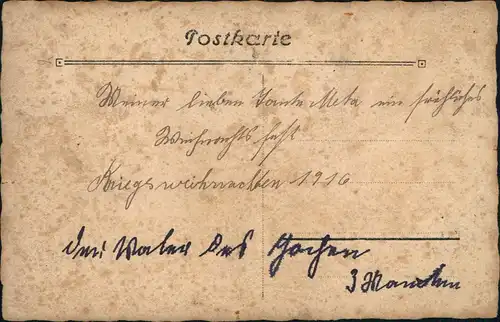 Postkarte
Meiner lieben Tante Meta ein fröhliches
Weihnachtsfest
Kriegsweihnachten 1916
Vater des Jochen
3 Monaten